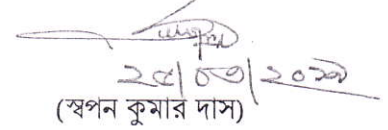 ২৫/০৩/২০১৯
(স্বপন কুমার দাস)